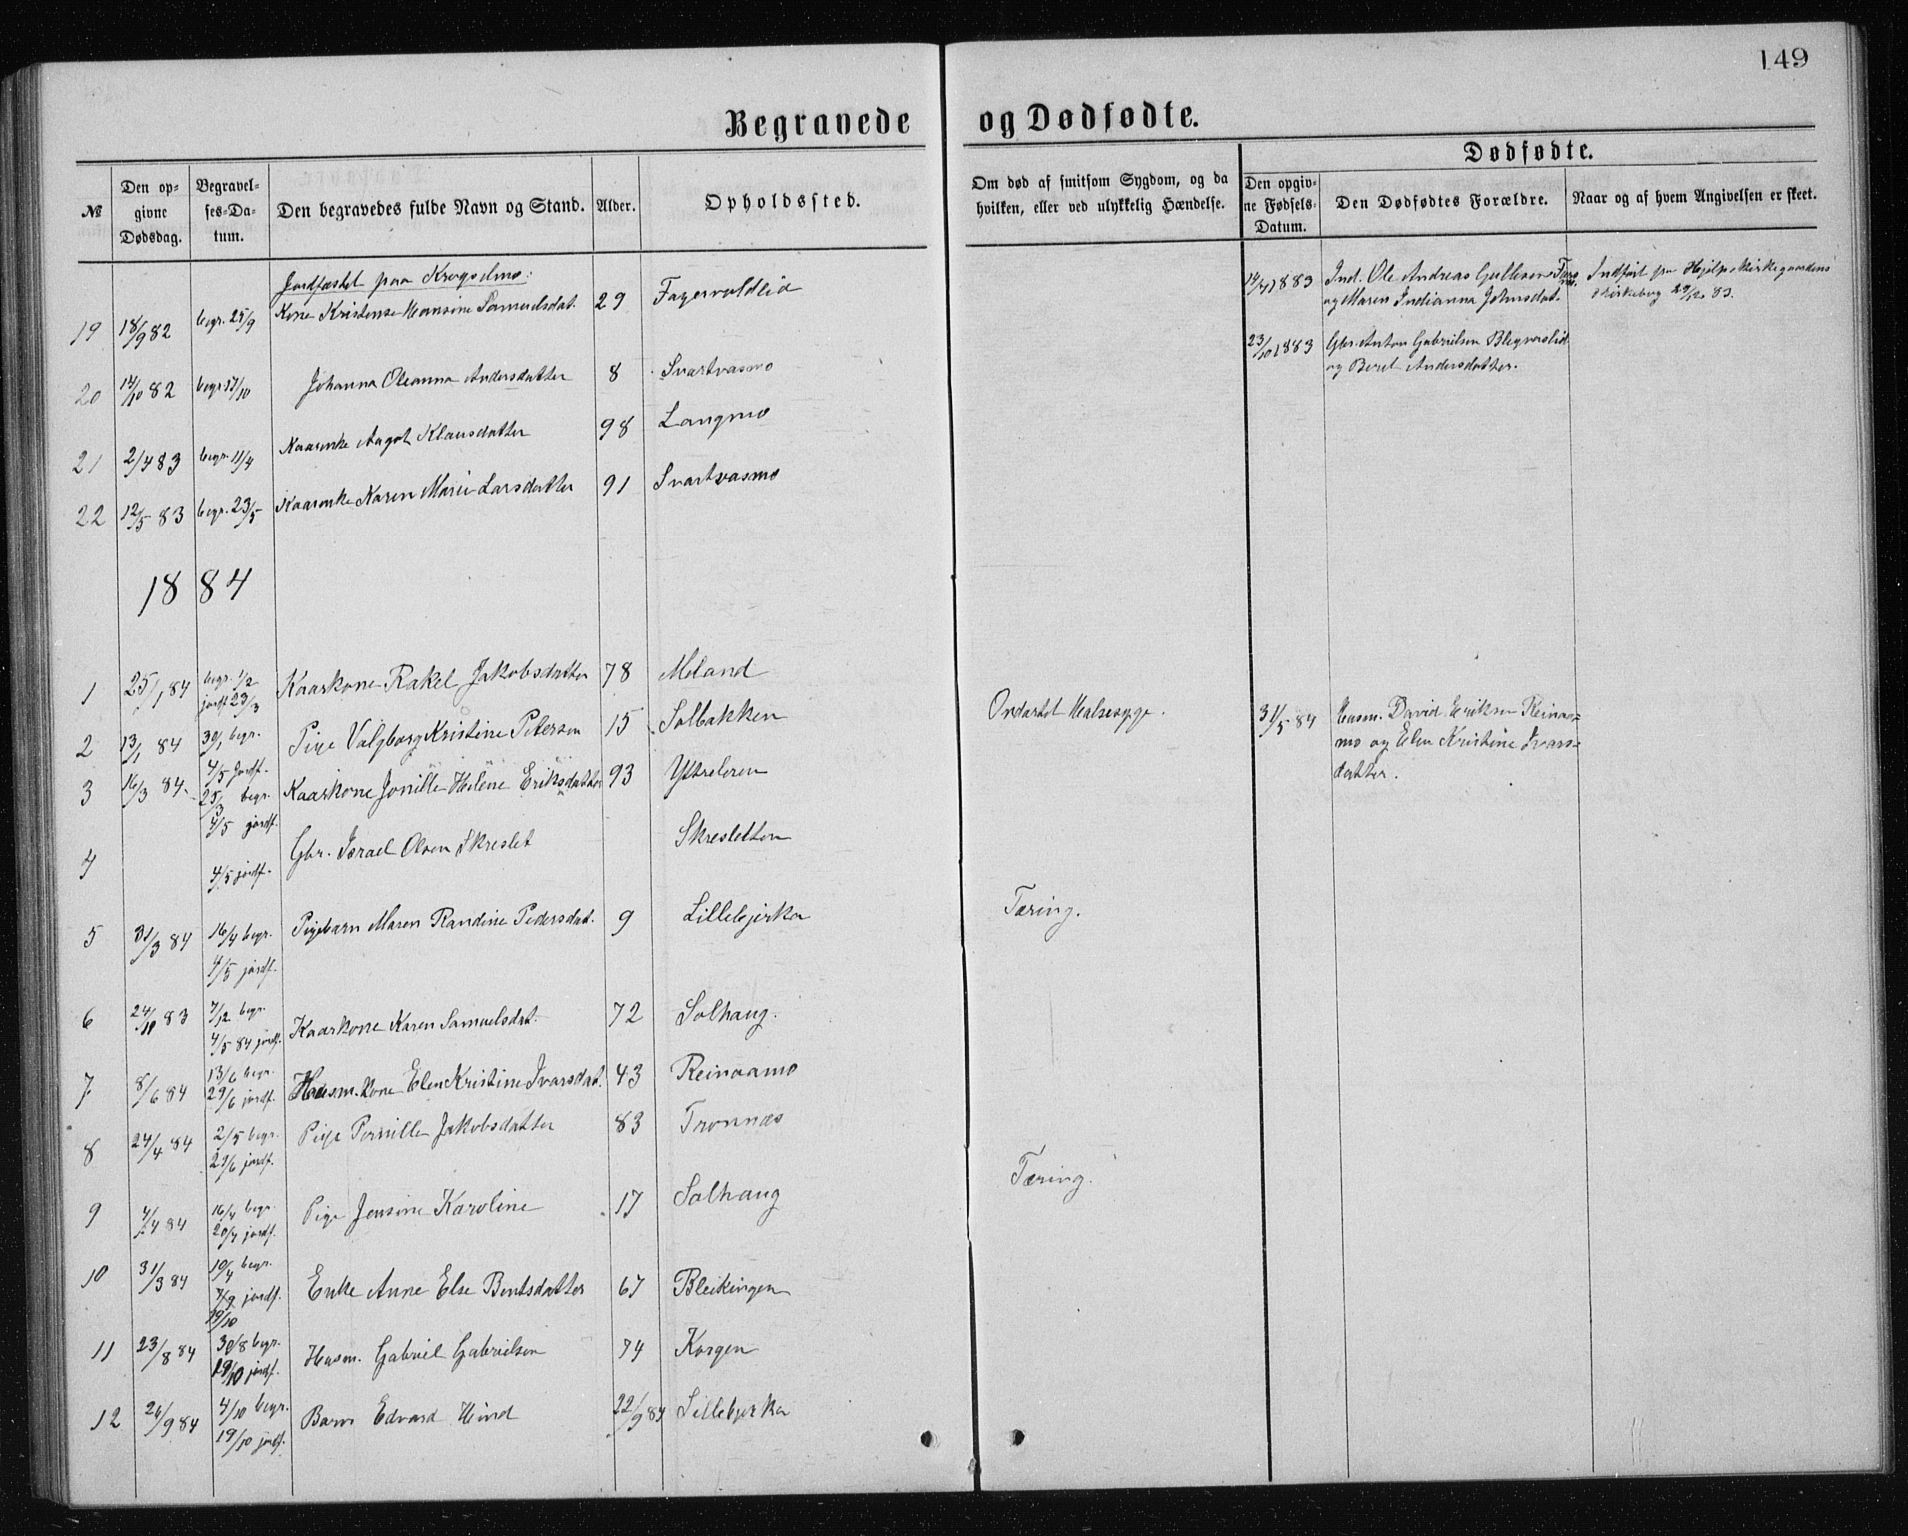 149
Begravede og Dødfødte.
№
Den opgivne Dødsdag.
Begravelses-Datum.
Den begravedes fulde Navn og Stand.
Alder.
Opholdssted.
Om død af smitsom Sygdom, og da hvilken, eller ved ulykkelig Hændelse.
Dødfødte.
Den opgivne Fødsels-Datum.
Den Dødfødtes Forældre.
Naar og af hvem Angivelsen er skeet.
Jordfæstet paa Krogselmo:
19 18/9 82 begr. 25/9 Kone Kristense Hansine Samuelsdat. 29 Fagervoldlid
14/4 1883 Ind. Ole Andreas Gullesen
og Maren Indianna Johnsdat.
Indført fra Hjelpekirkegaardens
Kirkebog 29/12 83.
20 14/10 82 begr. Johanna Oleanna Andersdatter 8 Svartvasmo
23/10 1883 Gbr. Anton Gabrielsen
og Beret Andersdatter.
21 2/4 83 begr. 11/4 Kaarenke Aagot Klausdatter 98 Langmo
22 12/5 83 begr. 23/5 Kaarenke Karen Marie Larsdatter 91 Svartvasmo
1884
1 25/1 84 begr. 1/2 jordf. 23/3 Kaarkone Rakel Jakobsdatter 78 Meland
2 13/1 84 30/1 begr. 4/5 Jordf. Pige Valgborg Kristine Petersen 15 Solbakken Ondartet Halssyge.
31/5 84 Husm. David Eriksen Reinaa-
mo og Elen Kristine Ivars-
datter.
3 16/3 84 25/3 begr. 4/5 jordf. Kaarkone Jonille Helene Eriksdatter 93 Ytreleren
4 4/5 jordf. Gbr. Israel Olsen Skreslet Skresletten
5 31/3 84 16/4 begr. 4/5 jordf. Pigebarn Maren Randine Pedersdat. 9 Lillebjerka Tæring.
6 83 7/12 begr. 4/5 84 jordf. Kaarkone Karen Samuelsdat. 72 Solhaug.
7 8/6 84 13/6 begr. 29/6 jordf. Husm.kone Elen Kristine Ivarsdat. 43 Reinaamo
8 24/4 84 2/5 begr. 29/6 jordf. Pige Pernille Jakobsdatter 83 Tronnæs
9 4/4 84 16/4 begr. 20/7 jordf. Pige Jensine Karoline 17 Solhaug Tæring.
10 31/3 84 10/4 begr. 7/9 jordf. 19/10 Enke Anne Else Bentsdatter 67 Bleikingen
11 23/8 84 30/8 begr. 19/10 jordf. Husm. Gabriel Gabrielsen 74 Korgen
12 26/9 84 4/10 begr. 19/10 jordf. Barn Edvard Hind 22/9 84 Lillebjerka